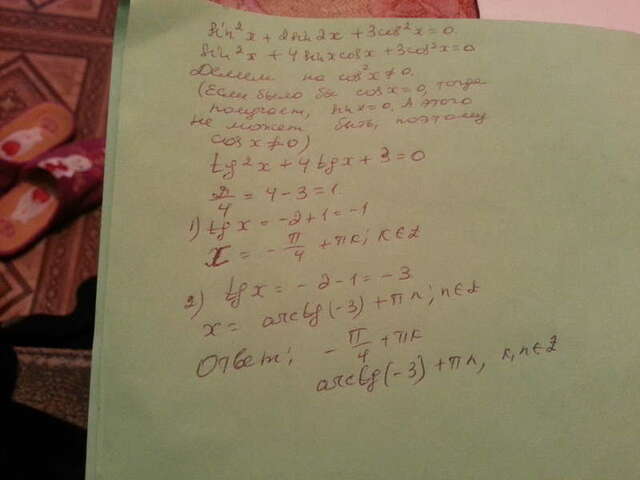 sin²x + 2sin2x + 3cos²x = 0.
sin²x + 4sinxcosx + 3cos²x = 0
Делим на cos²x ≠ 0.
(Если было бы cosx = 0, тогда
получаем, sinx = 0, а этого
не может быть, поэтому
cosx ≠ 0)
tg²x + 4tgx + 3 = 0
D/4 = 4 - 3 = 1
1) tgx = -2+1 = -1
x = -π/4 + πk; k∈Z
2) tgx = -2-1 = -3
x = arctg(-3) + πn; n∈Z
Ответ: -π/4 + πk
arctg(-3) + πn, k,n∈Z